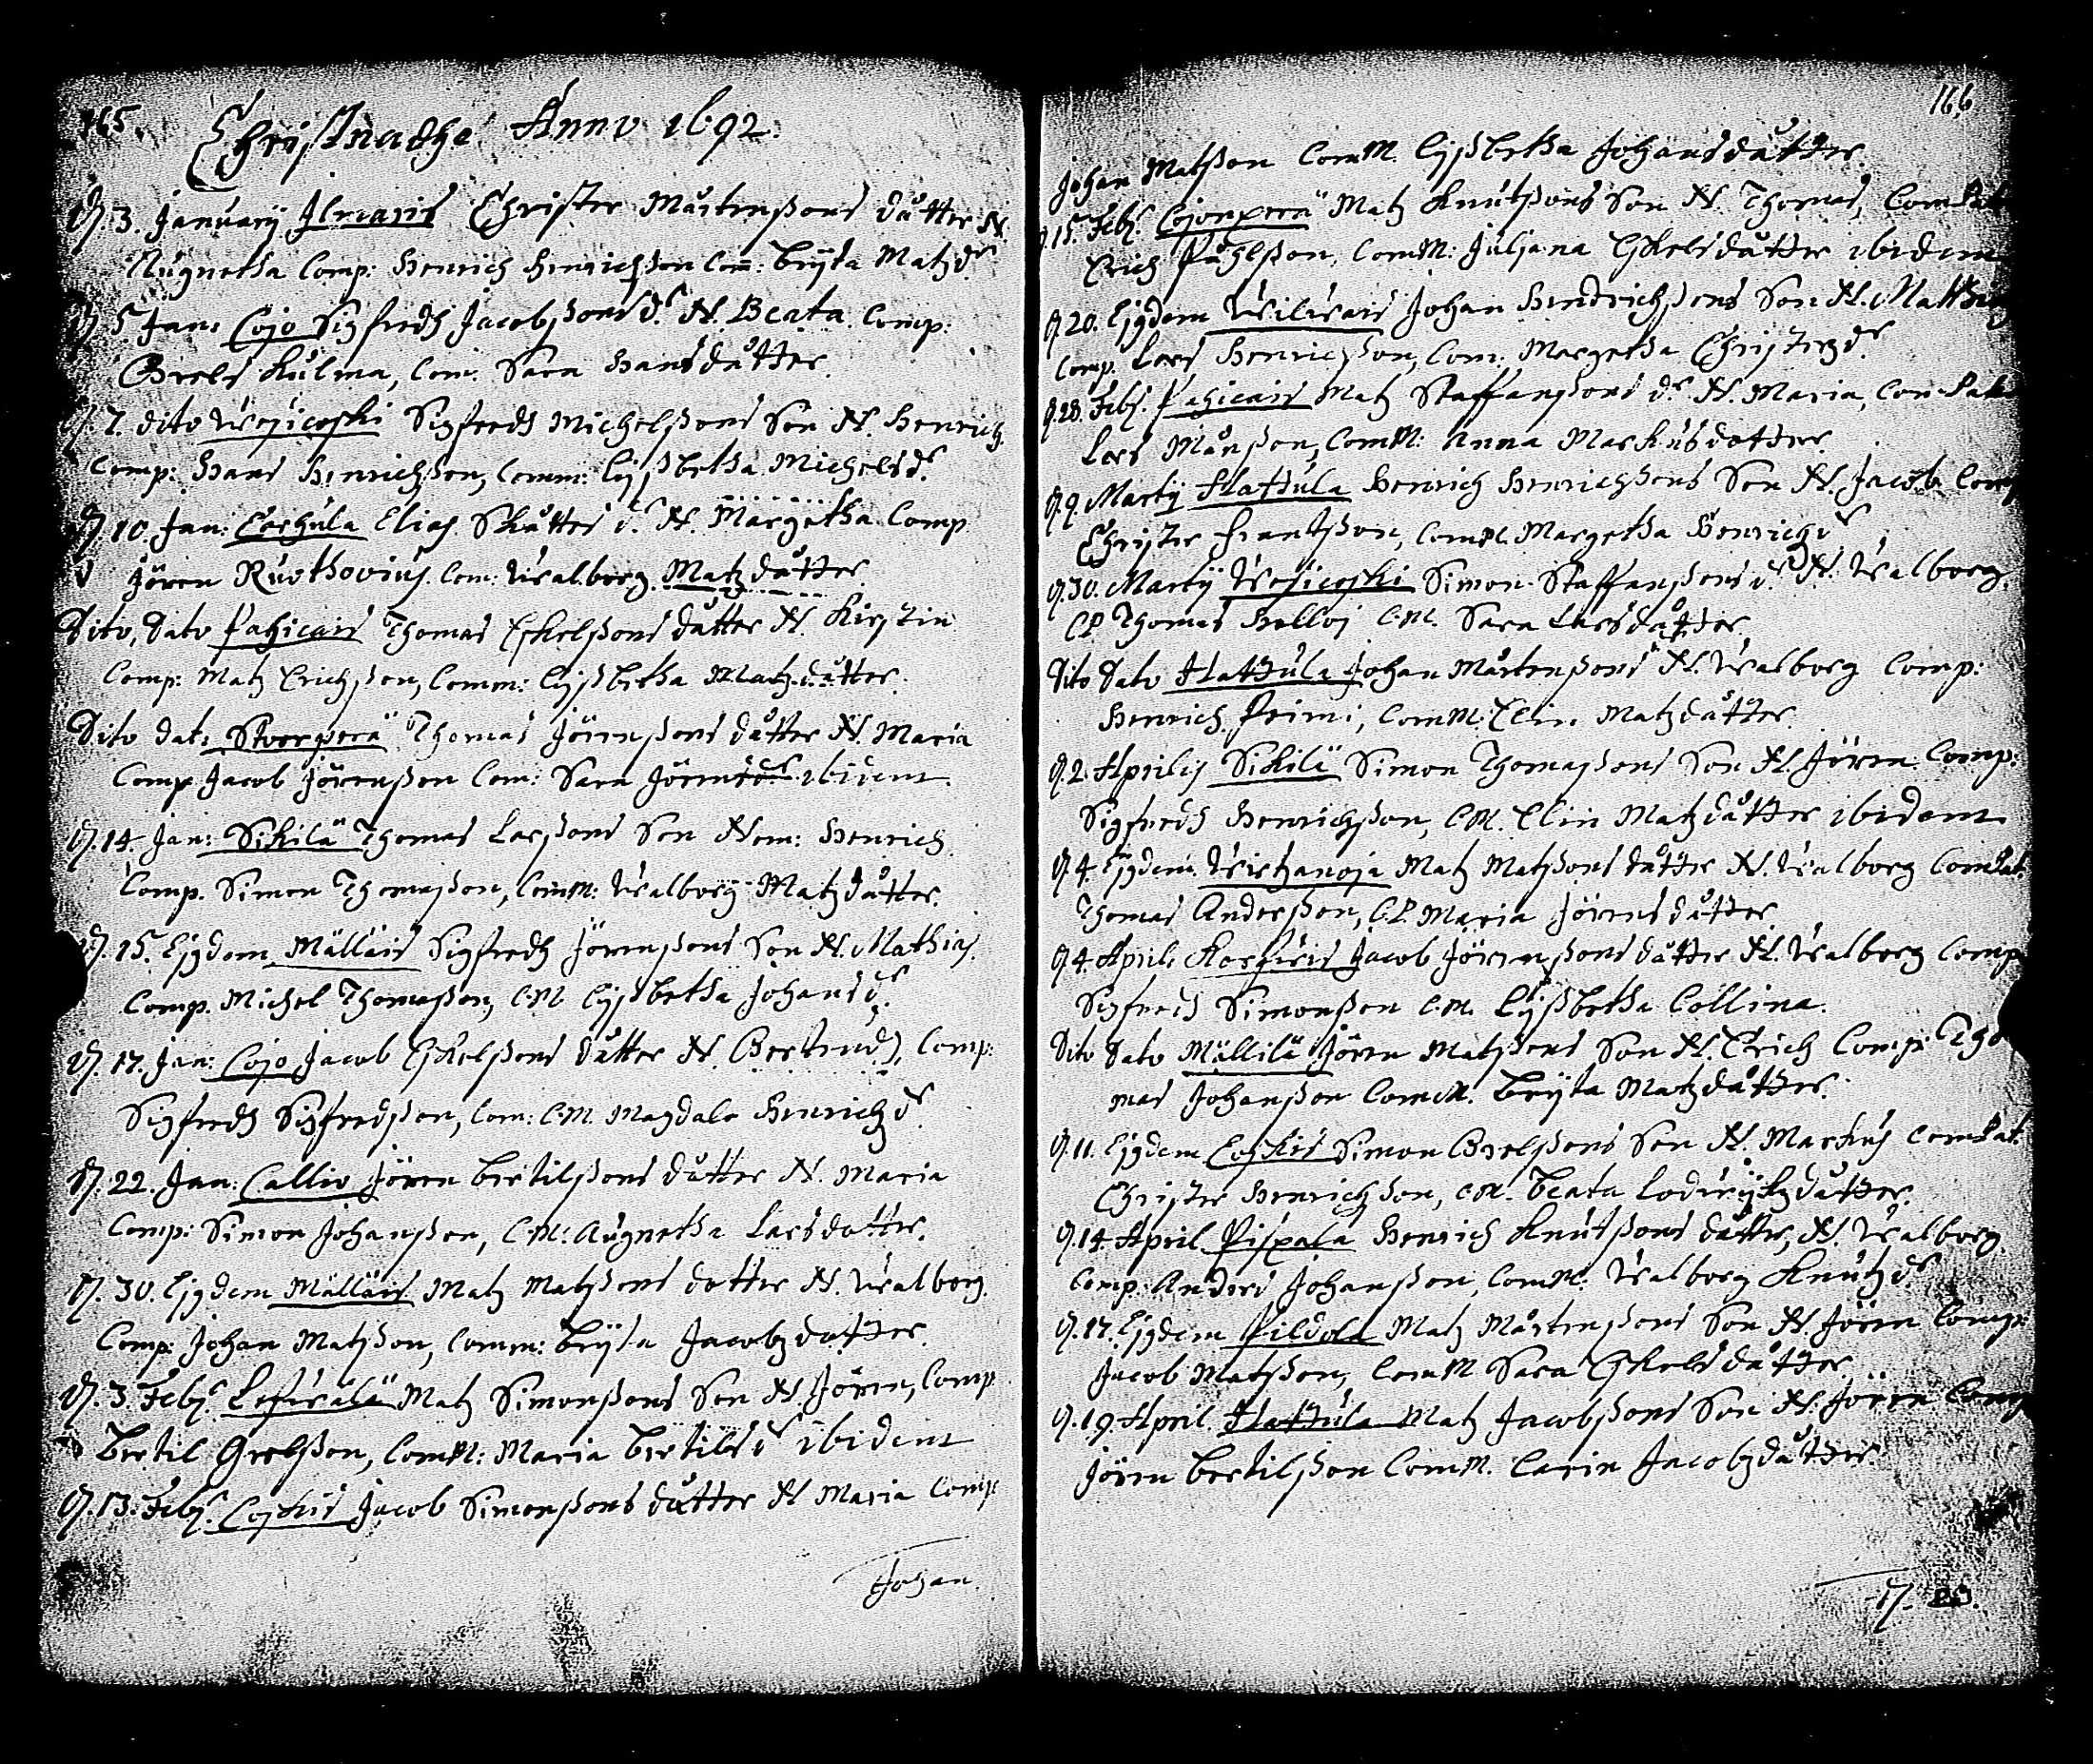 165.
Christnadhe Anno 1692.
D. 3. Januarij Ilmaris Christer Mårtenßons dåtter N.
Augnetha Comp: Henrich Hinrichßon Com: Brijta Matzdr
D 5 Jan: Cojo Sigfredh Jacobßons dr N. Beata. Comp:
Grels Kulma, Com: Sara Hansdåtter.
D. 7. dito Wesicoski Sigfredh Michelßons Son N. Henrich
Comp: Hans Hinrichßon, Comm: Lijsbetha Michelsdr
D. 10. Jan: Corhula Elias Skåttes dr N. Margetha Comp
Jören Ruothovius. Com: Walborg Matzdåtter.
Dito, Dato Pahicais Thomas Eskelßons dåtter N. Kirstin
Comp: Matz Erichßon, Comm: Lijsbetha Matzdåtter.
Dito dato Stoorperä Thomas Jörenßons dåtter N. Maria
Comp Jacob Jörenßon Com: Sara Jörensdr ibidem.
D. 14. Jan: Sikilä Thomas Larßons Son Nom: Henrich.
Comp. Simon Thomaßon, ComM: Walborg Matzdåtter.
D. 15. Ejgdem Mälläis Sigfredh Jörenßons Son N. Mathias.
Comp. Michel Thomaßon, C.M Lijsbetha Johansdr.
D. 17. Jan: Cojo Jacob Eskelßons dåtter N. Bertrud, Comp:
Sigfredh Sigfredßon, Com: C.M. Magdale Hinrichzdr
D. 22. Jan: Callio Jören Bertilßons dåtter N. Maria
Comp: Simon Johanßon, C.M: Augnetha Larsdotter.
D. 30. Ejgdem Mälläis Matz Matzßons dotter N. Walborg.
Comp: Johan Matzßon, Comm: Brijta Jacobzdotter.
D. 3. Febr. Matz Simonßons Son N Jören, Comp
Bertil Grelßon, ComM: Maria Bertilsdr ibidem
D. 13. Febr. Coskis Jacob Simonßons dåtter N Maria Comp
Johan.
166
Johan Matßon ComM. Lijsbetha Johansdåtter.
D. 15. Febr. Cojonperä Matz Knutßons Son N. Thomas, ComPat
Erich Påhlßon, ComM: Juliana Eskelsdåtter ibidem
D. 20. Ejgdem Johan Hendrichßons Son N. Matthias
Comp. Lars Henrichßon, Com: Margetha Christerzdr
D. 28. Febr. Pahicais Matz Staffanßons dr N. Maria, ComPat
Lars Månßon, ComM: Anna Markusdotter.
D. 9. Martij Hattula Henrich Henrichßons Son N. Jacob Comp
Christer Frantßon, ComM. Margetha Henrichzdr
D. 30. Martij Wesicoski Simon Staffanßons dr N. Walborg.
CP Thomas C.M. Sara Larsdåtter
Dito Dato Hattula Johan Mårtenßons N. Walborg Comp:
Henrich Primi, ComM. Elin Matzdåtter
D. 2. Aprilis Sikilä Simon Thomaßons Son N. Jören Comp:
Sigfredh Henrichßon, C.M. Elin Matzdåtter ibidem
D. 4. Ejgdem Wirhanoja Matz Matzßons dåtter N. Walborg ComPat.
Thomas Anderßon, C.P. Maria Jörensdåtter
D. 4. April: Jacob Jörenßons dåtter N. Walborg Comp
Sigfredh Simonßon C.M. Lijsbetha Collina.
Dito Dato Mällilä Jören Matzßons Son N. Erich Comp: Tho
mas Johanßon ComM. Brijta Matzdåtter.
D. 11. Ejgdem Coskis Simon Grelßons Son N. Markus ComPat.
Christer Henrichßon, C.M. Beata Lodwijkzdåtter.
D. 14. April Pispala Henrich Knutßons dåtter, N. Walborg.
Comp: Anders Johanßon, ComM: Walborg Knutzdr
D. 17. Ejgdem Pildola Matz Mårtenßons Son N Jören Comp:
Jacob Matzßon, ComM Sara Eskelsdåtter
D. 19. April. Hattula Matz Jacobßons Son N. Jören Comp
Jören Bertilßon ComM. Carin Jacobzdåtter.